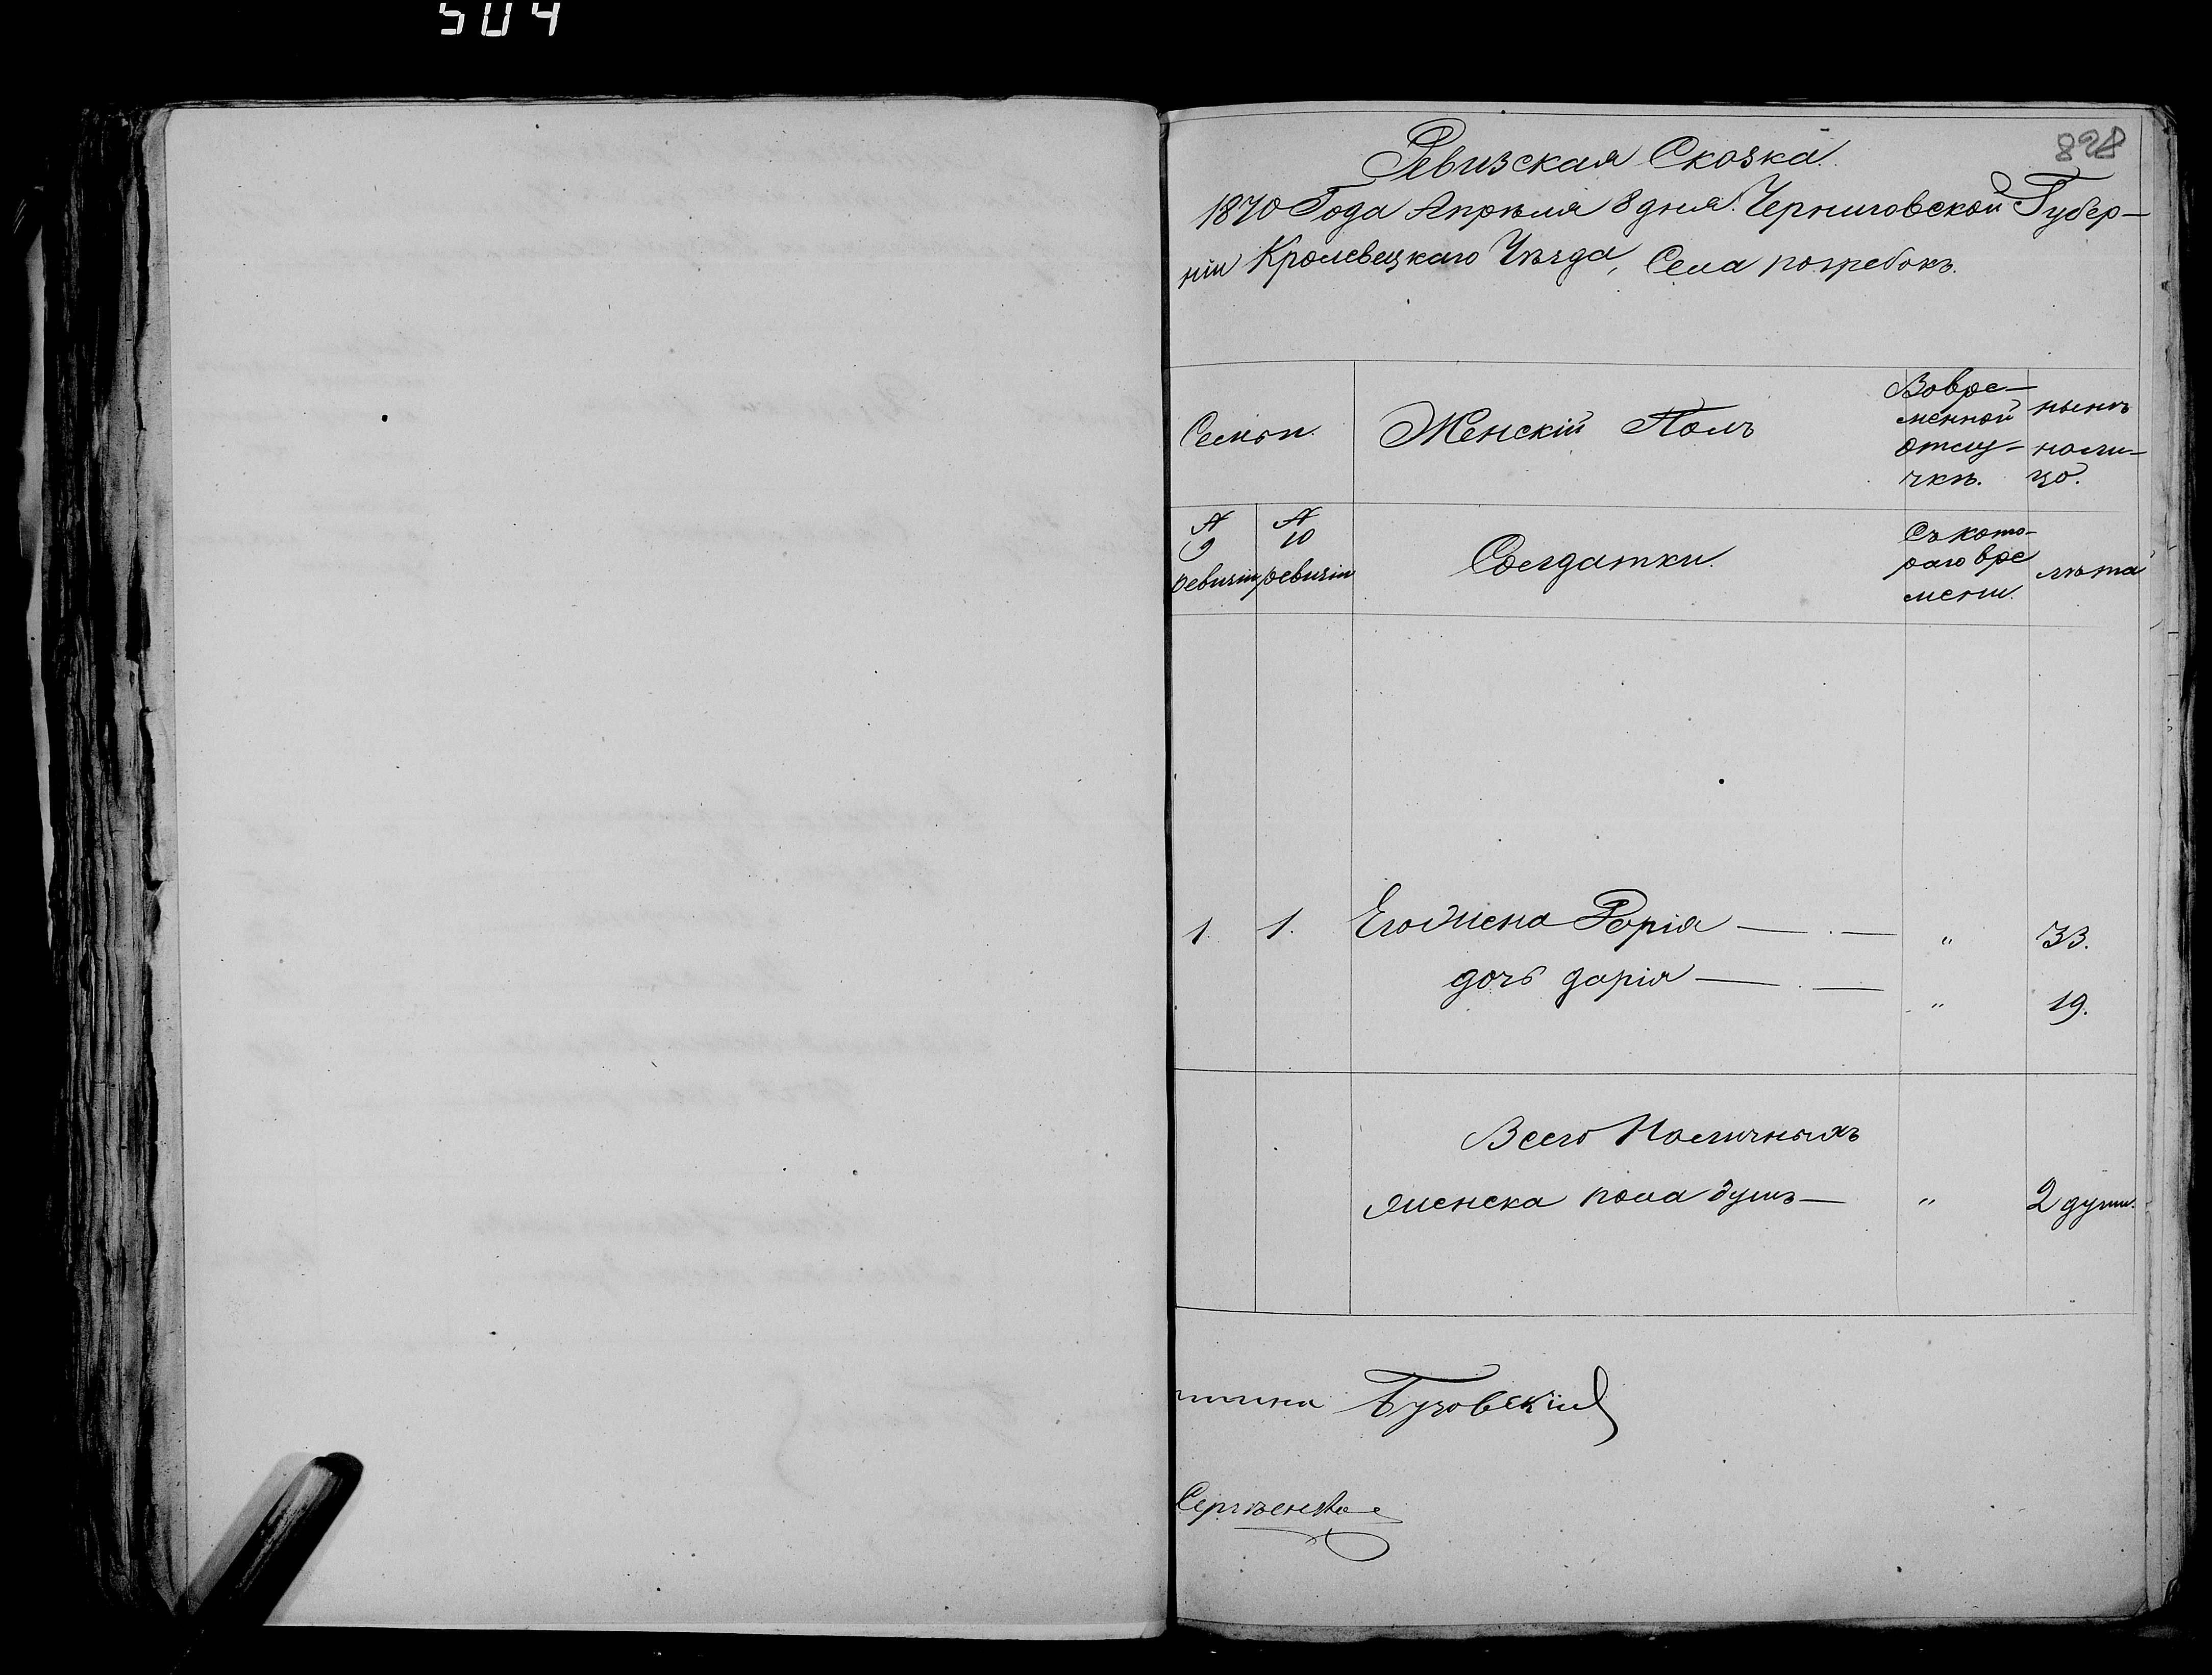 504
828
Ревизская Сказка.
1870 Года Апрѣля 8 дня. Черниговской Губер-
ніи Кролевецкаго Уѣзда, Села погребокъ.
Семьи.
Женскій Полъ
Во вре-
менной
отлу-
чкѣ.
нынѣ
нали-
цо.
№
9
ревизіи
№
10
ревизіи
Солдатки.
Съ кото-
раго вре
мени.
лѣта
1. 1. Его Жена - . - " 33.
дочь дарія - . - " 19.
Всего Наличныхъ
женска пола душъ - " 2 души.